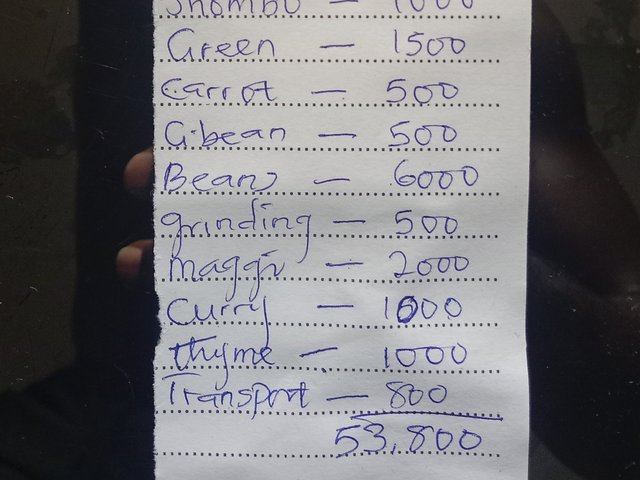 Shombo — 1000
Green — 1500
Carrot — 500
G.bean — 500
Beans — 6000
grinding — 500
maggi — 2000
Curry — 1000
thyme — 1000
Transport — 800
53,800